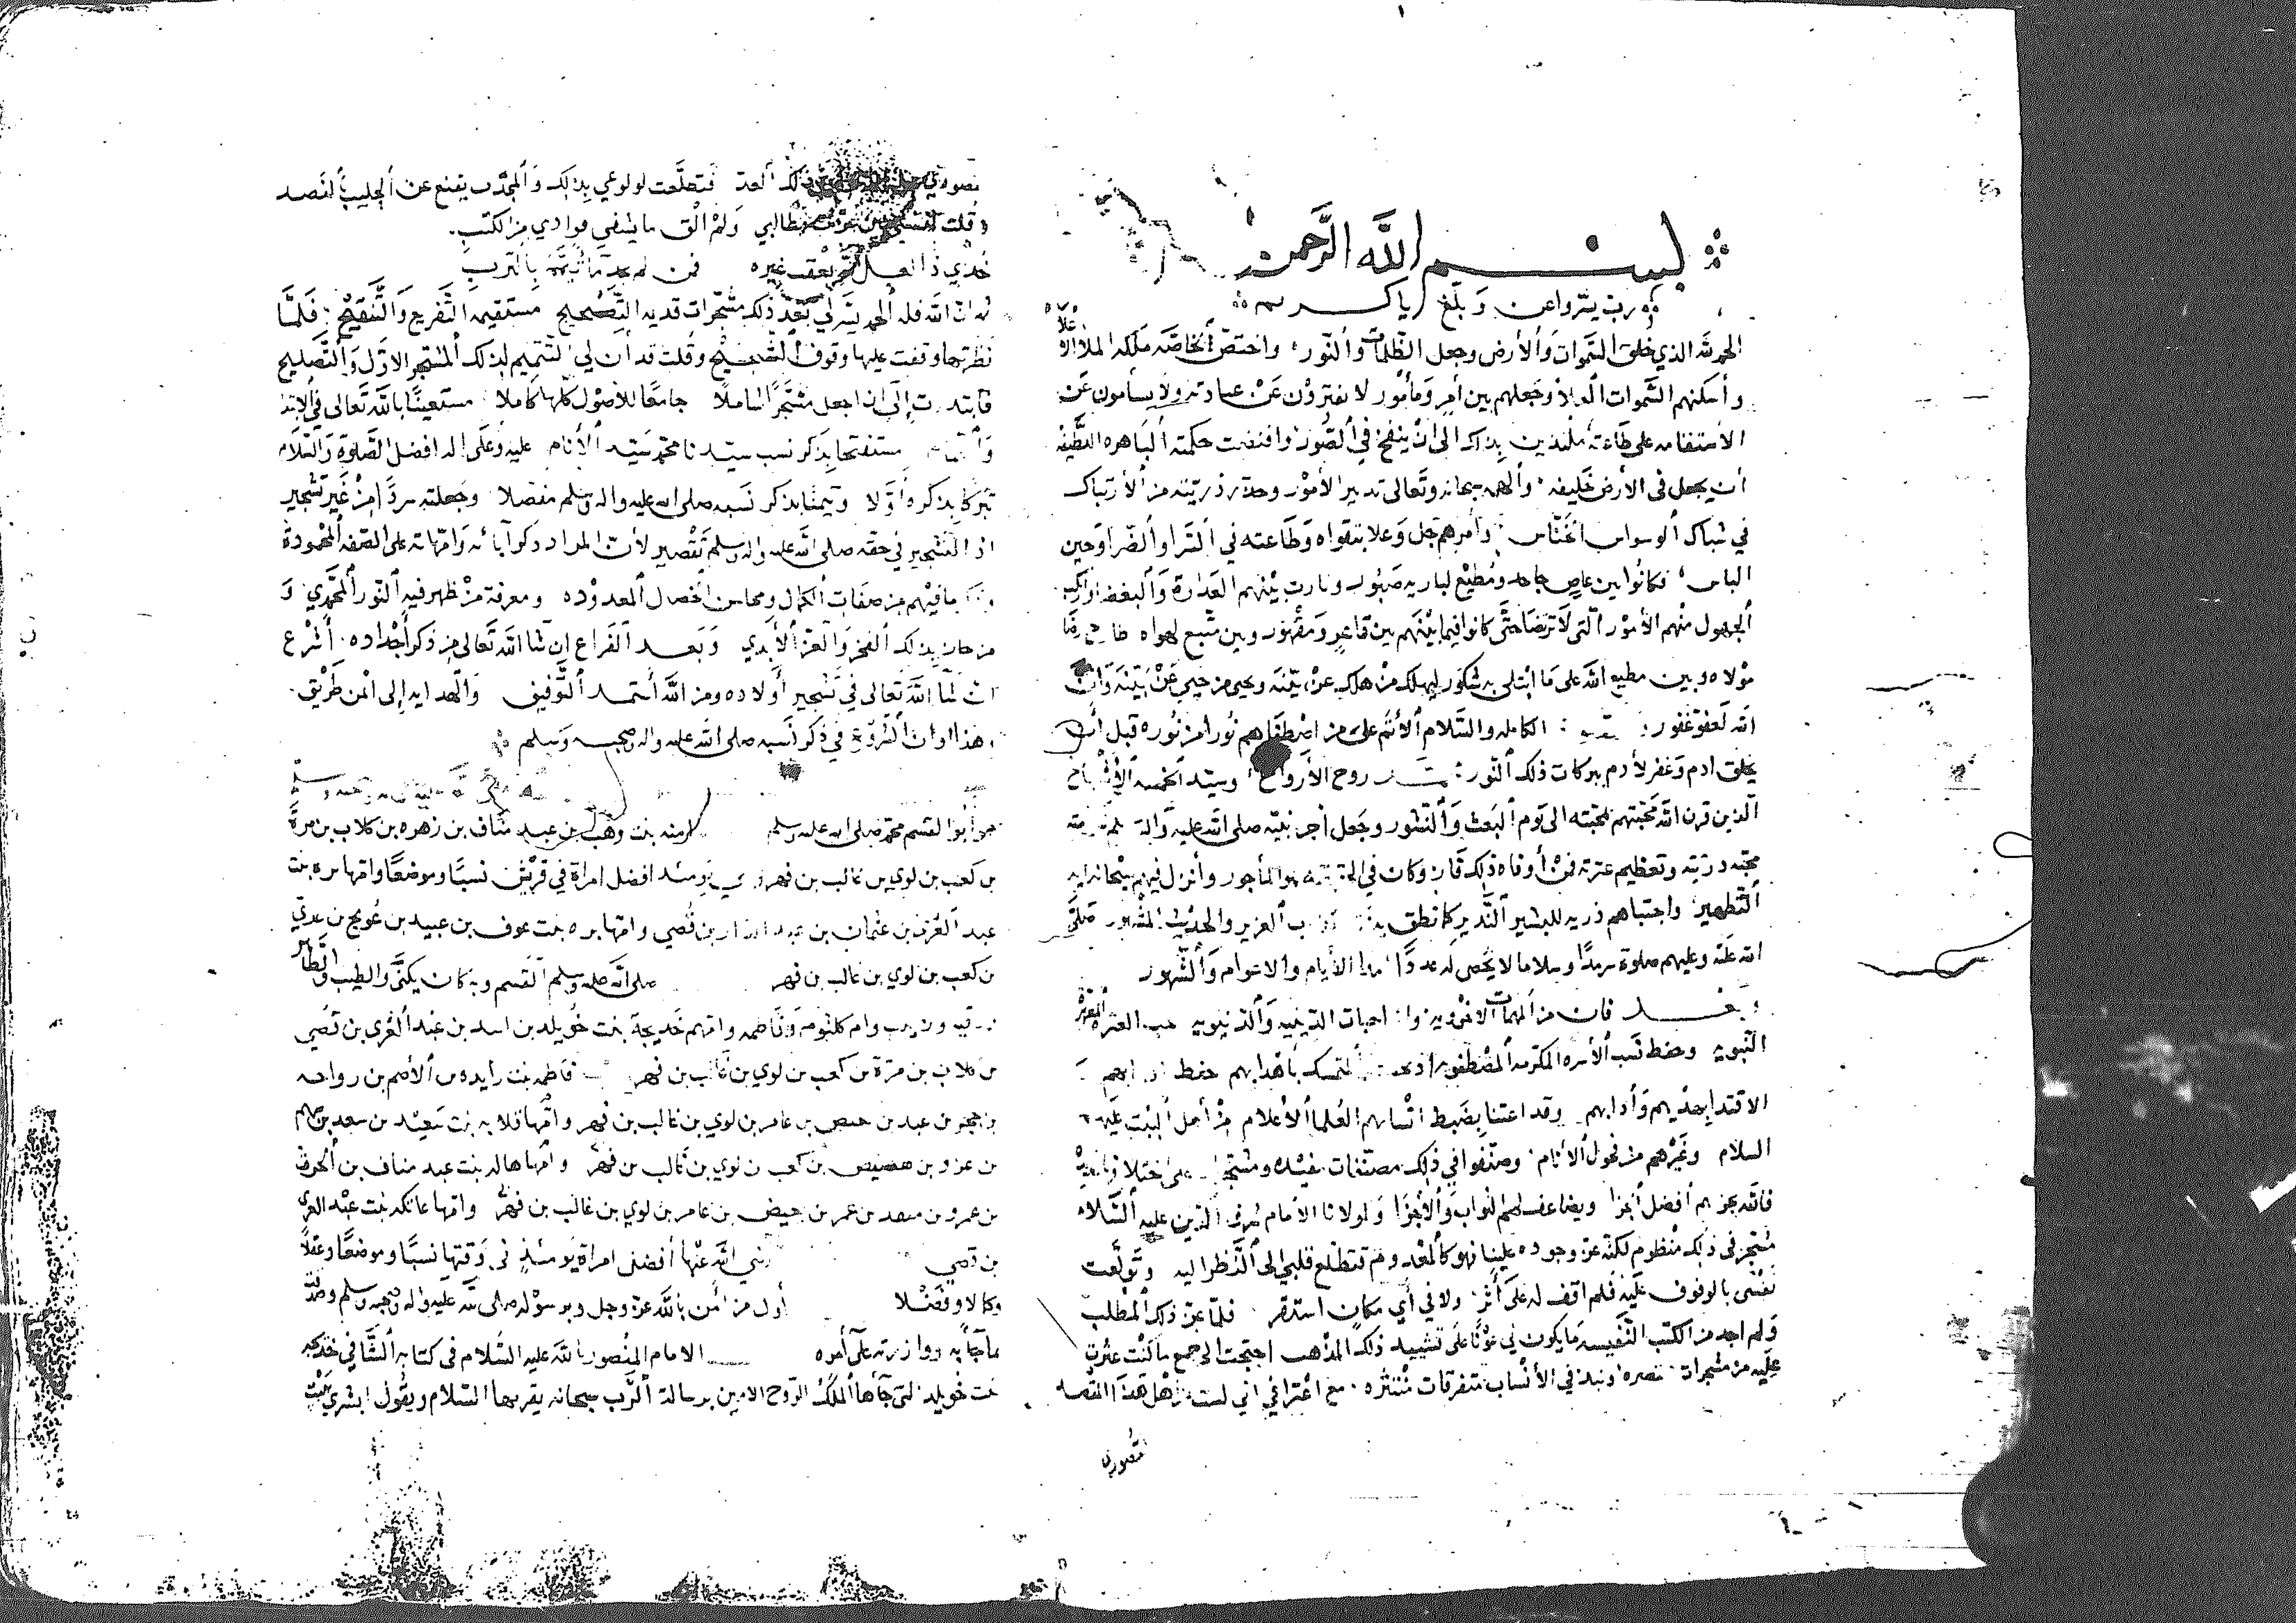 بسم الله الرحمن
رب يسر واعن وبلغ يا كريم
الحمد لله الذي خلق السموات والأرض وجعل الظلمات والنور واختص لخاصة ملكه الملأ الأعلا
وأسكنهم السموات العلا وجعلهم بين أمر ومأمور لا يفترون عن عبادته ولا يسأمون عن
الاستقامه على طاعته ملتذين بذلك الى أن ينفخ في الصور واقتضت حكمته الباهره اللطيفه
أن يجعل في الأرض خليفه وألهمه سبحانه وتعالى تدبير الأمور وحذر ذريته من الأرتباك
في شباك الوسواس الخناس وأمرهم جل وعلا بتقواه وطاعته في السرا والضرا وحين
الباس فكانوا بين عاص جاحد ومطيع لباريه صبور وثارت بينهم العداوة والبغضا وارتكب
الجهول منهم الأمور التي لا ترضا حتى كانوا فيما بينهم بين قاهر ومقهور وبين متبع لهواه
مولاه وبين مطيع الله على ما ابتلى به شكور ليهلك من هلك عن بينه ويحيى من حيي عن بينه وان
الله لعفو غفور الكامله والسلام الأتم على من اصطفاهم نورا من نوره قبل أن
يخلق ادم وغفر لأدم ببركات ذلك النور روح الأرواح وسيد الخمسه الأشباح
الذين قرن الله محبتهم بمحبته الى يوم البعث والنشور وجعل أجر نبيه صلى الله عليه واله
محبة ذريته وتعظيم عترته فمن أوفاه ذلك فاز وكان في هو المأجور وأنزل فيهم سبحانه آيه
التطهير واجتباهم ذريه للبشير النذير كما نطق به العزيز والحديث المشهور صلى
الله عليه وعليهم صلوة سرمدا وسلاما لا يحصى له عددا مدا الأيام والاعوام والشهور
وبعد فان من المهمات الاخرويه والدينيه والدنيويه حب العتره
النبويه وحفظ نسب الأسره المكرمه المصطفويه التمسك بأهدابهم حفظ
الاقتدا بهديهم وأدابهم وقد اعتنا بضبط انسابهم العلما الأعلام من أهل البيت عليهم
السلام وغيرهم من فحول الأنام وصنفوا في ذلك مصنفات مفيده على اختلاف
فالله يجزيهم أفضل الجزا ويضاعف لهم الثواب والأجزا ولمولانا الامام شرف الدين عليه السلام
مشجر في ذلك منظوم لكنه عز وجوده علينا فهو كالمعدوم فتطلع قلبي الى النظر اليه وتولعت
نفسي بالوقوف عليه فلم اقف له على أثر ولا في أي مكان استقر فلما عز ذلك المطلب
ولم اجد من الكتب النفيسه ما يكون لي عونا على تشييد ذلك المذهب احتجت الى جمع ما كنت عثرت
عليه من مشجرات مختصره ونبذ في الأنساب متفرقات منتثره مع اعترافي اني لست من أهل هذا المقصد
لقصوري
لقصوري ذلك العد فتطلعت لولوعي بذلك والمجدب يقنع عن الحليب بالفصد
وقلت لنفسي حين عزت مطالبي ولم الق ما يشفي فوادي من الكتب
خذي ذا غيره فمن لم يجد ما تيمم بالترب
ثم ان الله فله الحمد يسر لي بعد ذلك مشجرات قديمه التصحيح مستقيمه التفريع والتنقيح فلما
نظرتها وقفت عليها وقوف الشحيح وقلت قد أن لي التتميم لذلك المشجر الاول والتصليح
فابتدرت إلى ان اجعل مشجرا شاملا جامعا للأصول كلها كاملا مستعينا بالله تعالى في الابتدا
مستفتحا بذكر نسب سيدنا محمد سيد الأنام عليه وعلى اله افضل الصلوة والسلام
تبركا بذكره أولا وتيمنا بذكر نسبه صلى الله عليه واله وسلم مفصلا وجعلته سردا من غير تشجير
اذ التشجير في حقه صلى الله عليه واله وسلم تقصير لأن المراد ذكر آبائه وامهاته على الصفه المحمودة
وذكر ما فيهم من صفات الكمال ومحاسن الخصال المعدوده ومعرفة من ظهر فيه النور المحمدي و
من حاز بذلك الفخر والعز الأبدي وبعد الفراغ ان شا الله تعالى من ذكر أجداده أشرع
ان شا الله تعالى في تشجير أولاده ومن الله أستمد التوفيق والهدايه إلى أمن طريق
هذا اوان الشروع في ذكر نسبه صلى الله عليه واله وصحبه وسلم
هو أبو القسم محمد صلى الله عليه وسلم امنه بنت وهب بن عبد مناف بن زهره بن كلاب بن مرة
بن كعب بن لوي بن غالب بن فهر يومئذ افضل امراة في قريش نسبا وموضعا وامها بره بنت
عبد العزى بن عثمان بن عبد الدار بن قصي وامها بره بنت عوف بن عبيد بن عويج بن عدي
بن كعب بن لوي بن غالب بن فهر صلى الله عليه وسلم القسم وبه كان يكنى والطيب والطاهر
ورقيه وزينب وام كلثوم وفاطمه وامهم خديجة بنت خويلد بن اسد بن عبد العزى بن قصي
بن كلاب بن مرة بن كعب بن لوي بن غالب بن فهر فاطمه بنت زايده بن الأصم بن رواحه
بن حجر بن عبد بن معيص بن عامر بن لوي بن غالب بن فهر وامها قلابه بنت سعيد بن سعد بن سهم
بن عمرو بن هصيص بن كعب بن لوي بن غالب بن فهر وامها هاله بنت عبد مناف بن الحرث
بن عمرو بن منقذ بن عمر بن معيص بن عامر بن لوي بن غالب بن فهر وامها عاتكه بنت عبد العزى
بن قصي رضي الله عنها أفضل امراة يومئذ في وقتها نسبا وموضعا وعقلا
وكمالا وفضلا أول من أمن بالله عز وجل وبرسوله صلى الله عليه واله وصحبه وسلم وصدق
بما جا به ووازرته على أمره الامام المنصور بالله عليه السلام في كتابه الشافي خديجه
بنت خويلد التي جاها الملك الروح الامين برسالة الرب سبحانه يقريها السلام ويقول ابشري ببيت